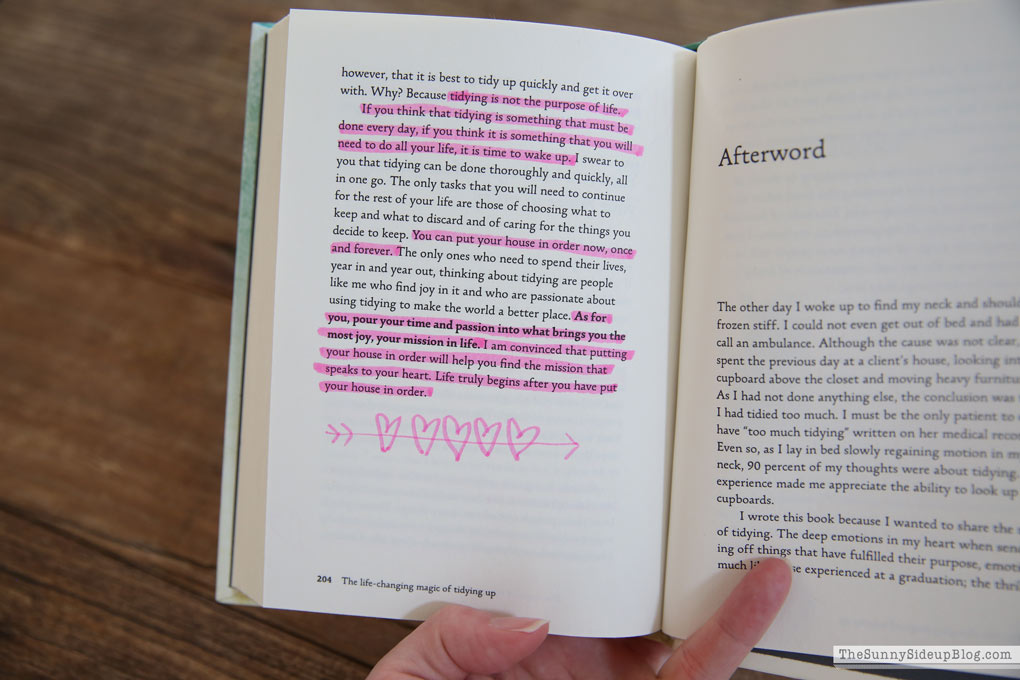 however, that it is best to tidy up quickly and get it over
with. Why? Because tidying is not the purpose of life.
If you think that tidying is something that must be
done every day, if you think it is something that you will
need to do all your life, it is time to wake up. I swear to
you that tidying can be done thoroughly and quickly, all
in one go. The only tasks that you will need to continue
for the rest of your life are those of choosing what to
keep and what to discard and of caring for the things you
decide to keep. You can put your house in order now, once
and forever. The only ones who need to spend their lives,
year in and year out, thinking about tidying are people
like me who find joy in it and who are passionate about
using tidying to make the world a better place. As for
you, pour your time and passion into what brings you the
most joy, your mission in life. I am convinced that putting
your house in order will help you find the mission that
speaks to your heart. Life truly begins after you have put
your house in order.
204 The life-changing magic of tidying up
Afterword
The other day I woke up to find my neck and
frozen stiff. I could not even get out of bed and had
call an ambulance. Although the cause was not clear,
spent the previous day at a client's house, looking
cupboard above the closet and moving heavy
As I had not done anything else, the conclusion was
I had tidied too much. I must be the only patient to
have "too much tidying" written on her medical
Even so, as I lay in bed slowly regaining motion in
neck, 90 percent of my thoughts were about tidying.
experience made me appreciate the ability to look up
cupboards.
I wrote this book because I wanted to share the
of tidying. The deep emotions in my heart when
ing off things that have fulfilled their purpose,
much experienced at a graduation; the
TheSunnySideupBlog.com